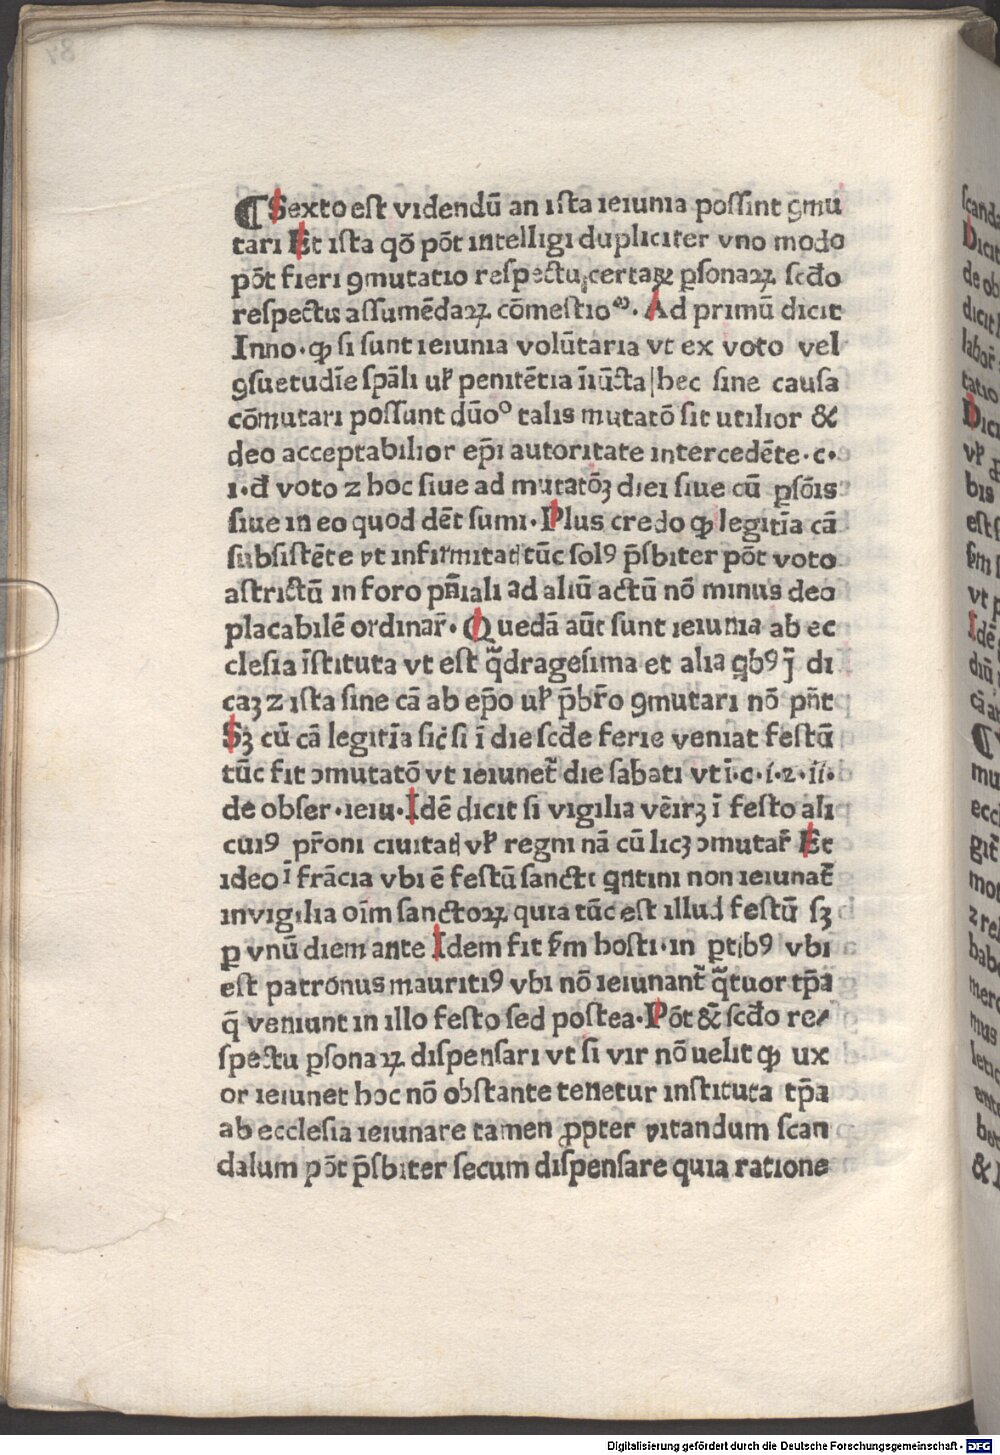 ¶ Sexto eſt videndū an iſta ieiunia poſſint ꝯmu
tari Et iſta qō pōt intelligi dupliciter vno modo
pōt fieri ꝯmutatio reſpectu certaꝝ ꝑſonaꝝ ſcd̄o
reſpectu aſſumēdaꝝ cōmeſtio. Ad primū dicit
Inno· ꝙ ſi ſunt ieiunia volūtaria vt ex voto vel
ꝯſuetudīe ſpāli ul̄ penitētia īiūcta hec ſine cauſa
cōmutari poſſunt dūo° talis mutatō ſit utilior &
deo acceptabilior ep̄i autoritate intercedēte·c·
i·đ voto ⁊ hoc ſiue ad mutatōꝫ diei ſiue cū ꝑſōis
ſiue in eo quod dēt ſumi· Plus credo ꝙ legitīa cā
ſubſiſtēte vt infirmitat tūc ſolꝰ p̄ſbiter pōt voto
aſtrictū in foro pn̄iali ad aliū actū nō minus deo
placabilē ordinar̄· Quedā aūt ſunt ieiunia ab ec
cleſia īſtituta vt eſt q̄drageſima et alia qbꝰ ī di
caꝫ ⁊ iſta ſine cā ab ep̄o ul̄ p̄br̄o ꝯmutari nō pn̄t
Sꝫ cū cā legitīa ſic ſi ī die ſcd̄e ferie veniat feſtū
tūc fit ꝯmutatō vt ieiunet̄ die ſabati vt ī·c·i·⁊·ii·
de obſer·ieiu· Idē dicit ſi vigilia vēirꝫ ī feſto ali
cuiꝰ pr̄oni ciuitat vl̄ regni nā cū licꝫ ꝯmutar̄ Et
ideo ī frācia vbi ē feſtū ſancti qntini non ieiunat̄
in vigilia oīm ſanctoꝝ quia tūc eſt illud feſtū ſꝫ
ꝑ vnū diem ante Idem fit ẜm hoſti·in ꝑtibꝰ vbi
eſt patronus mauritiꝰ vbi nō ieiunant̄ q̄tuor tp̄a
q̄ veniunt in illo feſto ſed poſtea· Pōt &̄ ſcd̄o re⸗
ſpectu ꝑſonaꝝ diſpenſari vt ſi vir nō uelit ꝙ ux
or ieiunet hoc nō obſtante tenetur inſtituta tp̄a
ab eccleſia ieiunare tamen ꝓpter vitandum ſcan
dalum pōt p̄ſbiter ſecum diſpenſare quia ratione
Digitalisierung gefördert durch die Deutsche Forschungsgemeinschaft - DFG